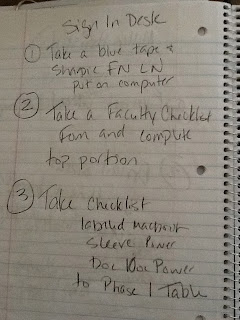 Sign In Desk
① Take a blue tape &
Sharpie FN LN
put on computer
② Take a Faculty Checklist
Form and complete
top portion
③ Take Checklist
labeled
Sleeve Power
Power
to Phase 1 Table